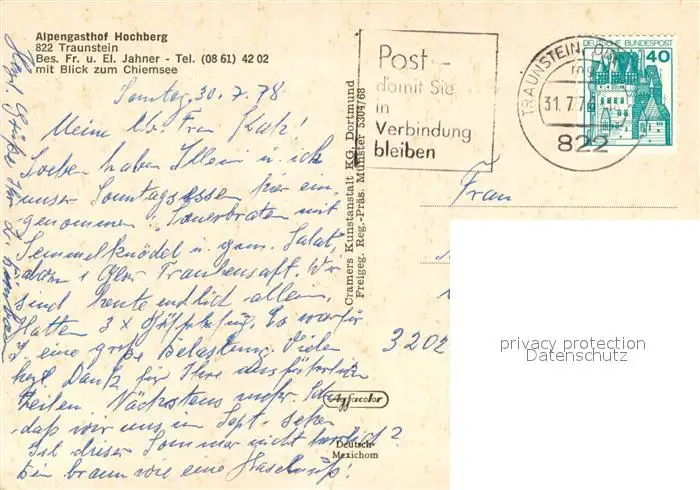 Alpengasthof Hochberg
822 Traunstein
Bes. Fr. u. El. Jahner - Tel. (08 61) 42 02
mit Blick zum Chiemsee
Sonntag, 30.7.78
Meine lb. Frau Katz!
Soeben haben u. ich
unser Sonntagsessen hier ein-
genommen. Sauerbraten mit
Semmelknödel u. gem. Salat,
dann 1 Glas Traubensaft. Wir
sind heute endlich allein.
Hatten 3 x Es war für
eine große Belastung. Vielen
herzl. Dank für Ihre ausführlichen
Zeilen. Nächstens mehr.
daß wir uns im Sept. sehen
Ist dieser Sommer nicht herrlich?
Bin braun wie eine Haselnuß!
Herzl. Grüße Ihre
Cramers Kunstanstalt KG, Dortmund
Freigeg. Reg.-Präs. Münster 5304/68
Agfacolor
Deutsch-
Mexichom
Post -
damit Sie
in
Verbindung
bleiben
TRAUNSTEIN
31.7.78
822
DEUTSCHE BUNDESPOST
40
Frau
3202
privacy protection
Datenschutz